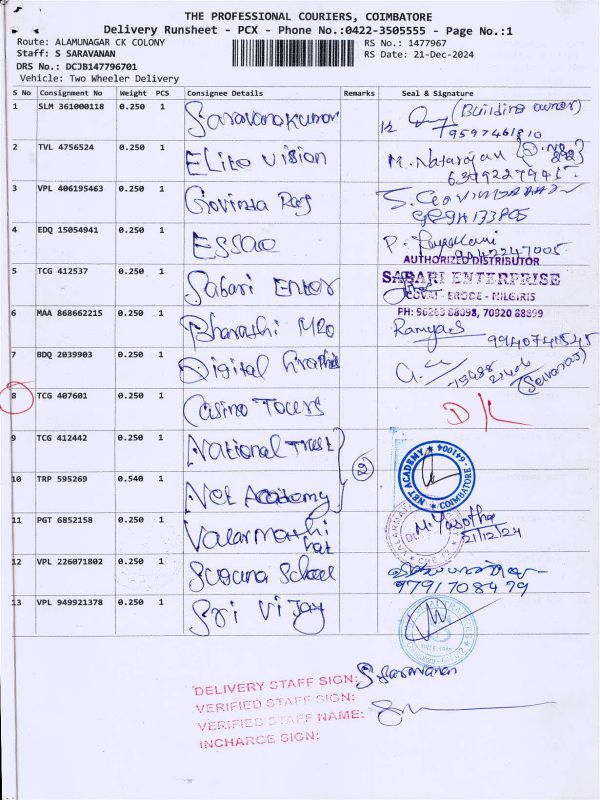 THE PROFESSIONAL COURIERS, COIMBATORE
Delivery Runsheet - PCX - Phone No.:0422-3505555 - Page No.:1
Route: ALAMUNAGAR CK COLONY
RS No.: 1477967
Staff: S SARAVANAN
RS Date: 21-Dec-2024
DRS No.: DCJB147796701
Vehicle: Two Wheeler Delivery
S No Consignment No Weight PCS Consignee Details Remarks Seal & Signature
1 SLM 361000118 0.250 1 Saravanakumar (Building owner)
9597461810
2 TVL 4756524 0.250 1 Elite Vision M. Natarajan
3 VPL 406195463 0.250 1 Govinda Raj
4 EDQ 15054941 0.250 1 P. 9442247005
AUTHORIZED DISTRIBUTOR
5 TCG 412537 0.250 1 Sabari Enter SABARI ENTERPRISE
COVAI - ERODE - NILGIRIS
6 MAA 868662215 0.250 1 Bharathi PH: 96263 88098, 70920 88899
Ramya.S
7 BDQ 2039903 0.250 1 Digital
8 TCG 407601 0.250 1 Casino Tours D/L
9 TCG 412442 0.250 1 National Trust
10 TRP 595269 0.540 1 Net Academy NET ACADEMY COIMBATORE - 641004
11 PGT 6852158 0.250 1 Valarmathi M. Yasotha
21/12/24
12 VPL 226071802 0.250 1 School
9791708479
13 VPL 949921378 0.250 1 Sri Vijay
DELIVERY STAFF SIGN: S Saravanan
VERIFIED STAFF SIGN:
VERIFIED STAFF NAME:
INCHARGE SIGN: